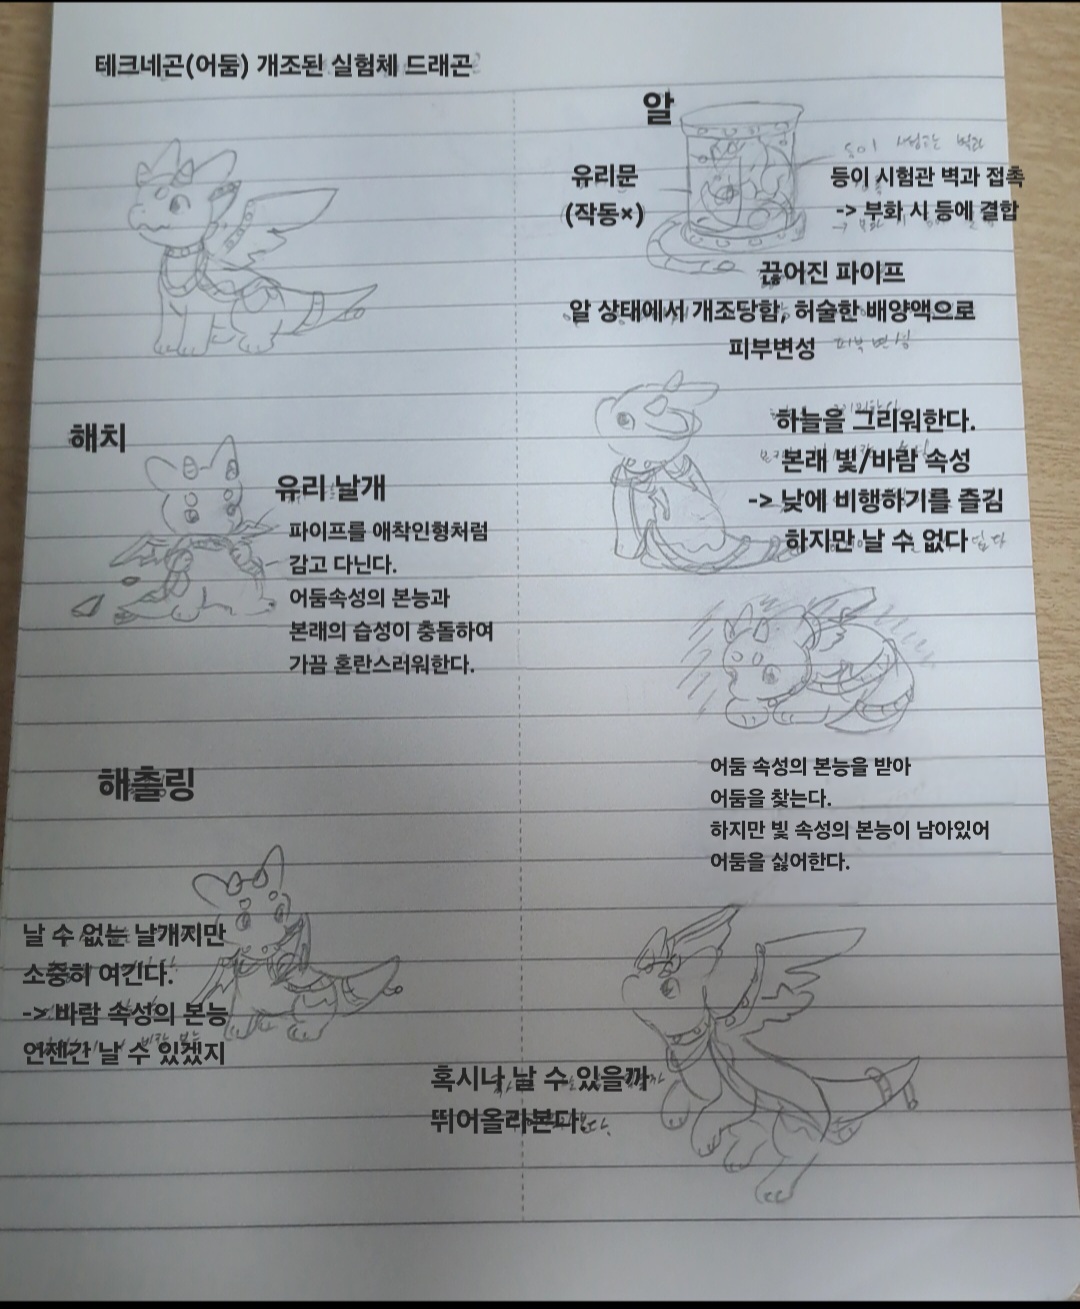 테크네곤(어둠) 개조된 실험체 드래곤
알
유리문
(작동×)
등이 시험관 벽과 접촉
-> 부화 시 등에 결합
끊어진 파이프
알 상태에서 개조당함, 허술한 배양액으로
피부변성
피부변성
해치
유리 날개
파이프를 애착인형처럼
감고 다닌다.
어둠속성의 본능과
본래의 습성이 충돌하여
가끔 혼란스러워한다.
하늘을 그리워한다.
본래 빛/바람 속성
-> 낮에 비행하기를 즐김
하지만 날 수 없다
어둠 속성의 본능을 받아
어둠을 찾는다.
하지만 빛 속성의 본능이 남아있어
어둠을 싫어한다.
해츨링
날 수 없는 날개지만
소중히 여긴다.
-> 바람 속성의 본능
언젠간 날 수 있겠지
혹시나 날 수 있을까
뛰어올라본다